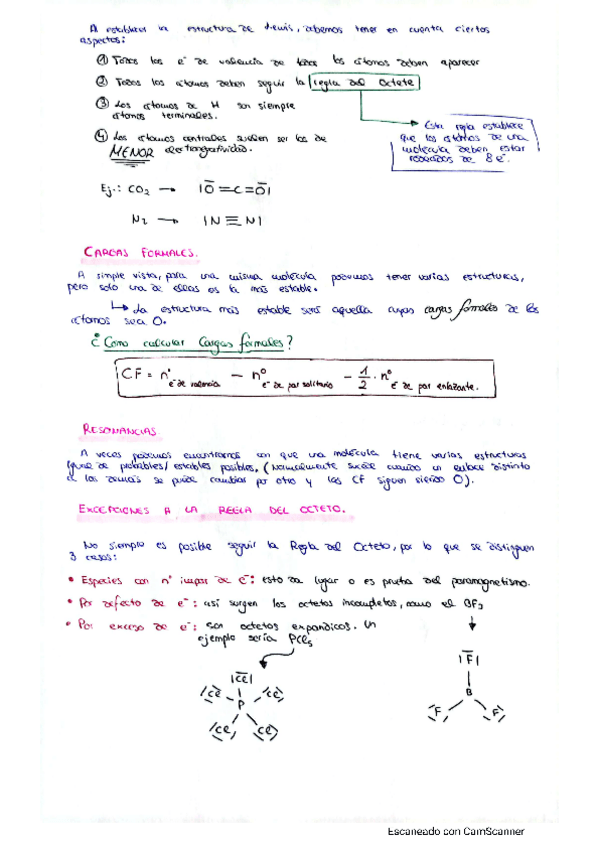 A establecer la estructura de Lewis, debemos tener en cuenta ciertos
aspectos:
① Todos los e⁻ de valencia de todos los átomos deben aparecer
② Todos los átomos deben seguir la regla del Octete
③ Los átomos de H son siempre
átomos terminales.
④ Los átomos centrales suelen ser los de
MENOR electronegatividad.
Esta regla establece
que los átomos de una
molécula deben estar
rodeados de 8 e⁻.
Ej.: CO₂ → |O̅=C=O̅|
N₂ → |N≡N|
CARGAS FORMALES.
A simple vista, para una misma molécula podemos tener varias estructuras,
pero solo una de ellas es la más estable.
↳ La estructura más estable será aquella cuyas cargas formales de los
átomos sea 0.
¿Como calcular Cargas formales?
CF = nº e⁻ de valencia − nº e⁻ de par solitario − 1/2 · nº e⁻ de par enlazante.
RESONANCIAS
A veces podemos encontrarnos con que una molécula tiene varias estructuras
igual de probables/estables posibles. (Normalmente sucede cuando un enlace distinto
a los demás se puede cambiar por otro y las CF siguen siendo 0).
EXCEPCIONES A LA REGLA DEL OCTETO.
No siempre es posible seguir la Regla del Octeto, por lo que se distinguen
3 casos:
• Especies con nº impar de e⁻: esto da lugar o es prueba del paramagnetismo.
• Por defecto de e⁻: así surgen los octetos incompletos, como el BF₃
• Por exceso de e⁻: son octetos expandidos. Un
ejemplo sería PCl₅
|Cl|
Cl Cl
P
Cl Cl
|F|
B
F F
Escaneado con CamScanner